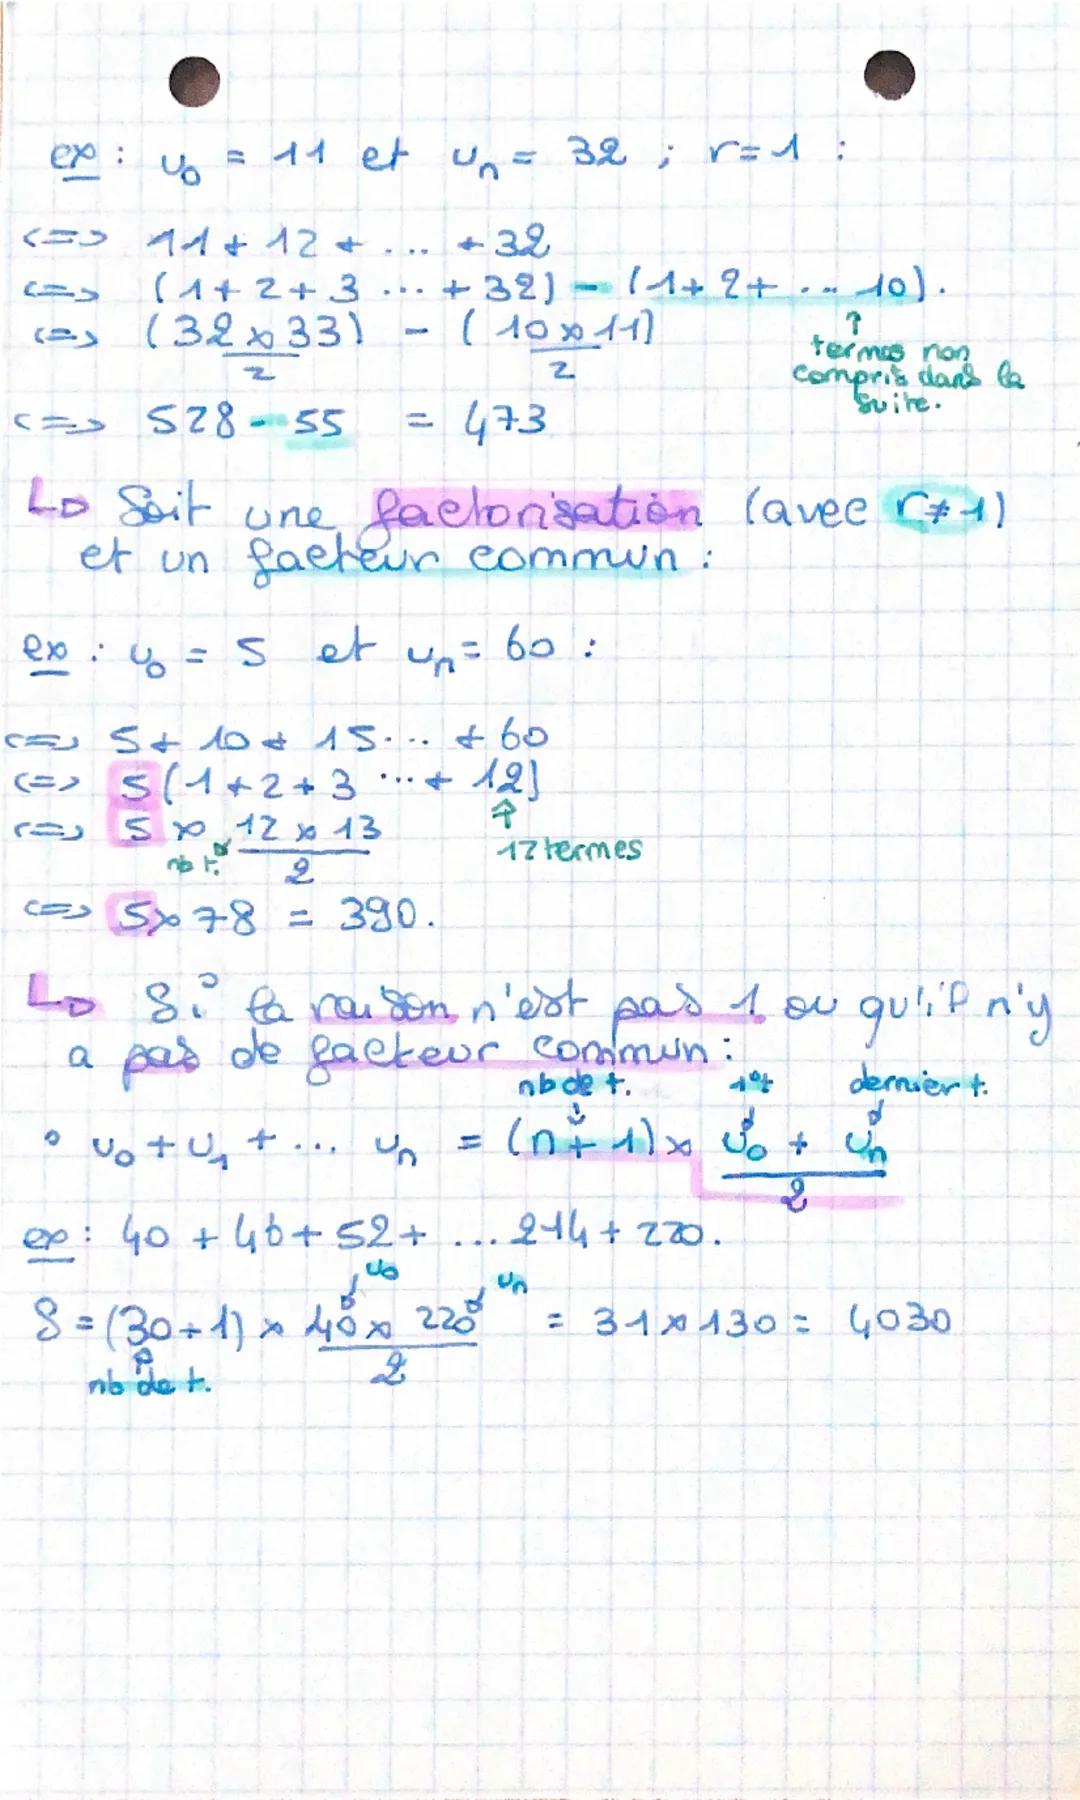 ex : u₀ = 11 et uₙ = 32 ; r=1 :
<=> 11 + 12 + ... + 32
<=> (1+2+3 ... + 32) - (1+2+ ... 10).
<=> (32 x 33)/2 - (10 x 11)/2
↑
termes non
compris dans la
suite.
<=> 528 - 55 = 473
↳ Soit une factorisation (avec r≠1)
et un facteur commun :
ex : u₀ = 5 et uₙ = 60 :
<=> 5 + 10 + 15 ... + 60
<=> 5(1+2+3 ...+ 12)
<=> 5 x (12 x 13)/2
nb t.
↑
12 termes
<=> 5x78 = 390.
↳ Si la raison n'est pas 1 ou qu'il n'y
a pas de facteur commun :
nb de t. 1er dernier t.
• u₀ + u₁ + ... uₙ = (n+1) x (u₀ + uₙ)/2
ex : 40 + 46 + 52 + ... 214 + 220.
u₀ uₙ
S = (30+1) x (40 x 220)/2 = 31 x 130 = 4030
nb de t.